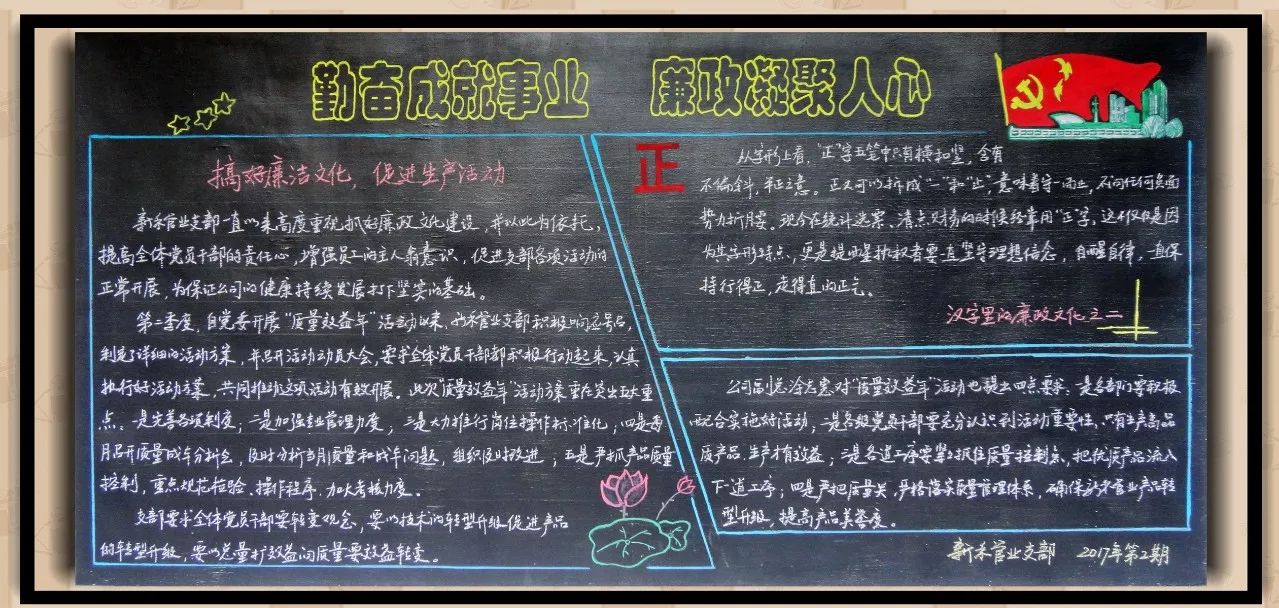 勤奋成就事业 廉政凝聚人心
搞好廉洁文化，促进生产活动
新禾管业支部一直以来高度重视抓好廉政文化建设，并以此为依托，
提高全体党员干部的责任心，增强员工的主人翁意识，促进支部各项活动的
正常开展，为保证公司的健康持续发展打下坚实的基础。
第二季度，自党委开展“质量效益年”活动以来，新禾管业支部积极响应号召，
制定了详细的活动方案，并召开活动动员大会，要求全体党员干部都积极行动起来，认真
执行好活动方案，共同推动这项活动有效开展。此次“质量效益年”活动方案重在突出五大重
点：一是完善各项制度；二是加强专业管理力度；三是大力推行岗位操作标准化；四是每
月召开质量成本分析会，及时分析当月质量和成本问题，组织及时改进；五是严抓产品质量
控制，重点规范检验、操作程序，加大考核力度。
支部要求全体党员干部要转变观念，要以技术的转型升级促进产品
的转型升级，要以总量扩效益向质量要效益转变。
正
从字形上看，“正”字五笔中只有横和竖，含有
不偏斜、平正之意。正又可以拆成“一”和“止”，意味着守一而止，不向任何负面
势力折腰。现今在统计选票、清点财务的时候经常用“正”字，这不仅仅是因
为其字形特点，更是提醒执权者要一直坚守理想信念，自醒自律，一直保
持行得正，走得直的正气。
汉字里的廉政文化之二
公司副总冷志惠对“质量效益年”活动也提出四点要求：一是各部门要积极
配合实施好活动；二是各级党员干部要充分认识到活动重要性，只有生产高品
质产品，生产才有效益；三是各道工序要牢牢抓住质量控制点，把优质产品流入
下一道工序；四是严把质量关，严格落实质量管理体系，确保新禾管业产品转
型升级，提高产品美誉度。
新禾管业支部 2017年第2期